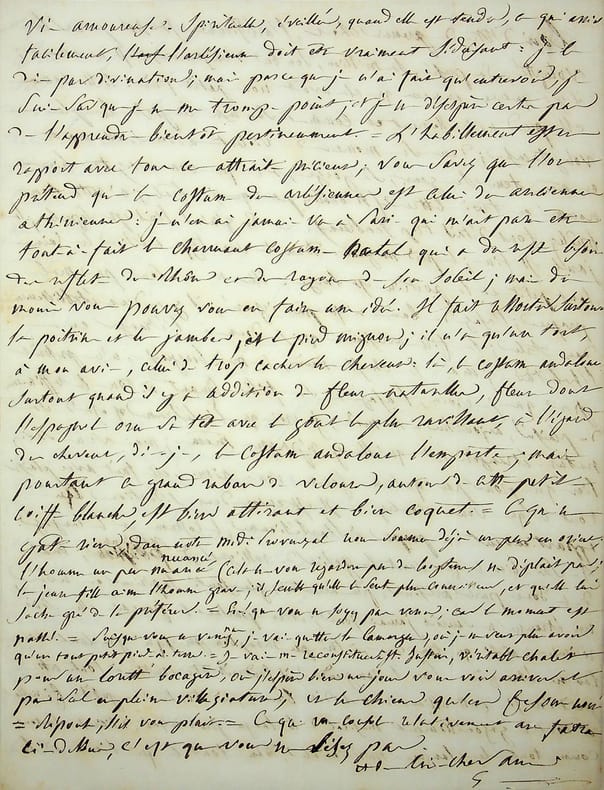 vie amoureuse. Spirituelle, éveillée, quand elle est tendre, ce qui arrive
facilement, l'arlésienne doit être vraiment séduisante : je le
dis par divination, mais parce que je n'ai fait qu'entrevoir, je
suis sûr que je ne me trompe point, et je ne désespère certes pas
de l'apprendre bientôt pertinemment. = L'habillement est en
rapport avec tous ces attraits précieux ; vous savez que l'on
prétend que le costume des arlésiennes est celui des anciennes
athéniennes : je n'en ai jamais vu à Paris qui m'ait paru être
tout-à-fait le charmant costume natal qui a du reste besoin
des reflets du Rhône et des rayons de son soleil ; mais du
moins vous pouvez vous en faire une idée. Il fait ressortir surtout
la poitrine et les jambes, et le pied mignon ; il n'a qu'un tort,
à mon avis, celui de trop cacher les cheveux : là, le costume andalous
surtout quand il y a addition de fleurs naturelles, fleurs dont
l'espagnole orne sa tête avec le goût le plus ravissant, à l'égard
des cheveux, dis-je, le costume andalous l'emporte ; mais
pourtant ce grand ruban de velours, autour de cette petite
coiffe blanche, est bien attirant et bien coquet. = Ce qui ne
gâte rien, dans notre midi Provençal nous sommes déjà un peu en orient
nuancé
l'homme un peu (cela ne vous regarde pas) de ne déplait pas ;
la jeune fille aime l'homme grave ; il semble qu'elle le sent plus connaisseur, et qu'elle lui
sache gré de la préférer. = Puisque vous ne soyez pas venu ; car le moment est
passé. = Puisque vous ne venez, je vais quitter la Camargue, où je ne veux plus avoir
qu'un tout petit pied à terre. = Je vais me reconstituer à St. Justin, véritable chalet
pour un bocager, où j'espère bien un jour vous voir arriver et
pas seul en pleine villégiature ; et le chien
= Réponse, s'il vous plait. = Ce qui me console relativement au
ci-dessus, c'est que vous ne lisez pas.
cher ami